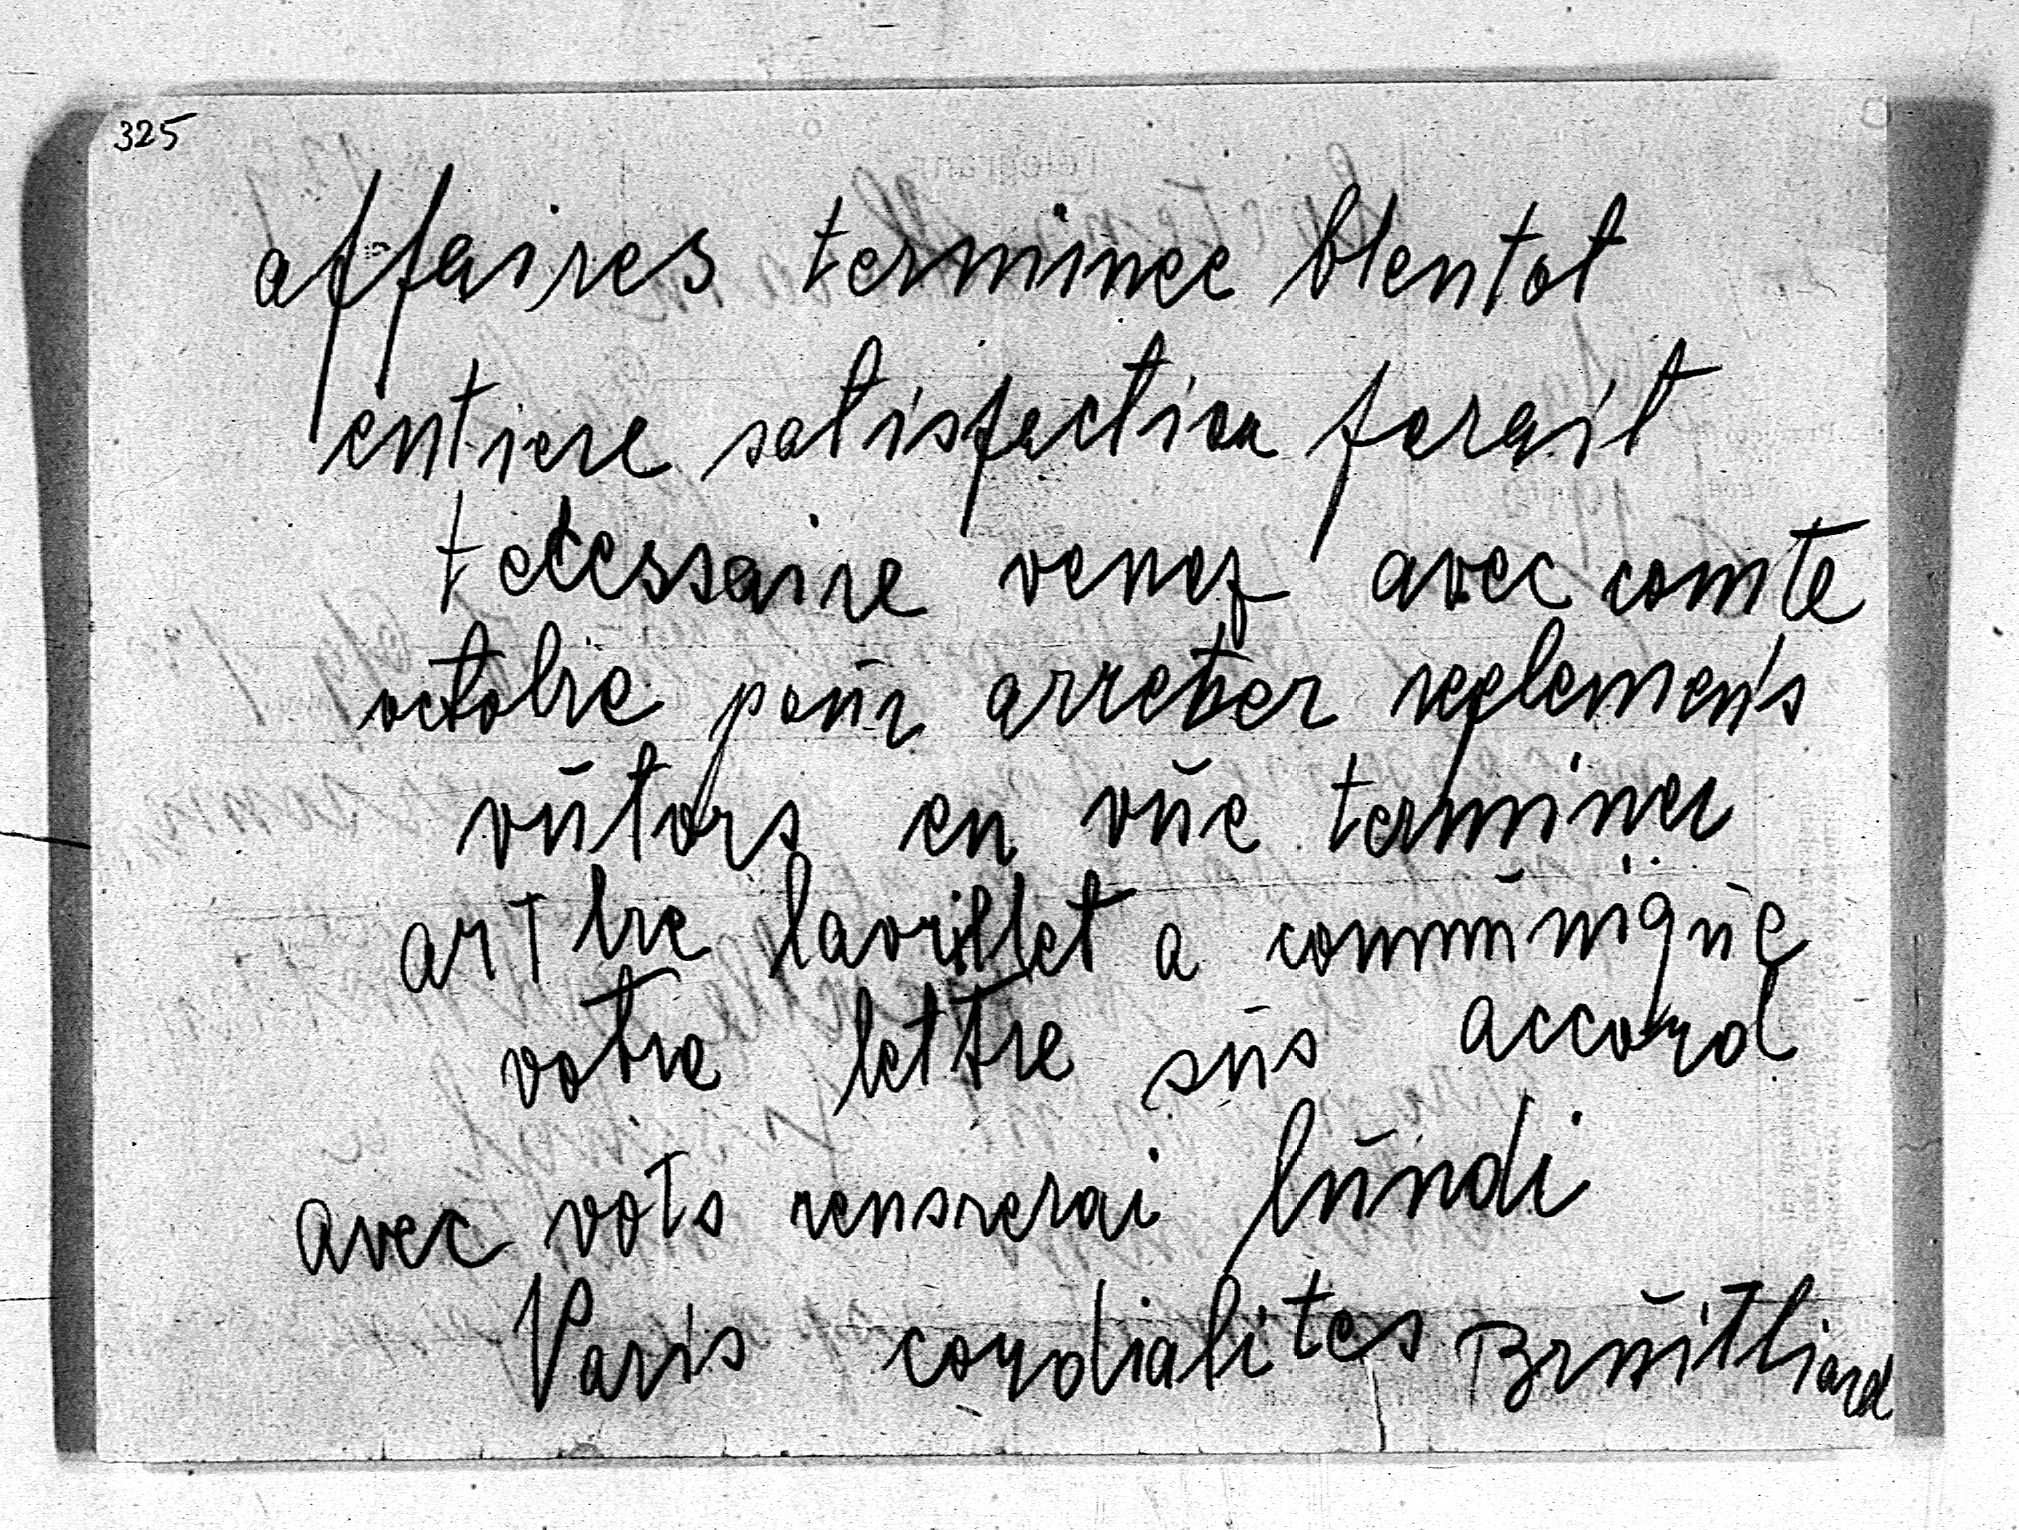 325
affaires terminee blentot
entiere satisfaction forait
tecessaire venez avec comte
octobre pour arreter reglemens
vutors en vue terminer
art bre lavrillet a communique
votre lettre sus accord
avec vots rensrerai lundi
Varis cordialites Bruitliard